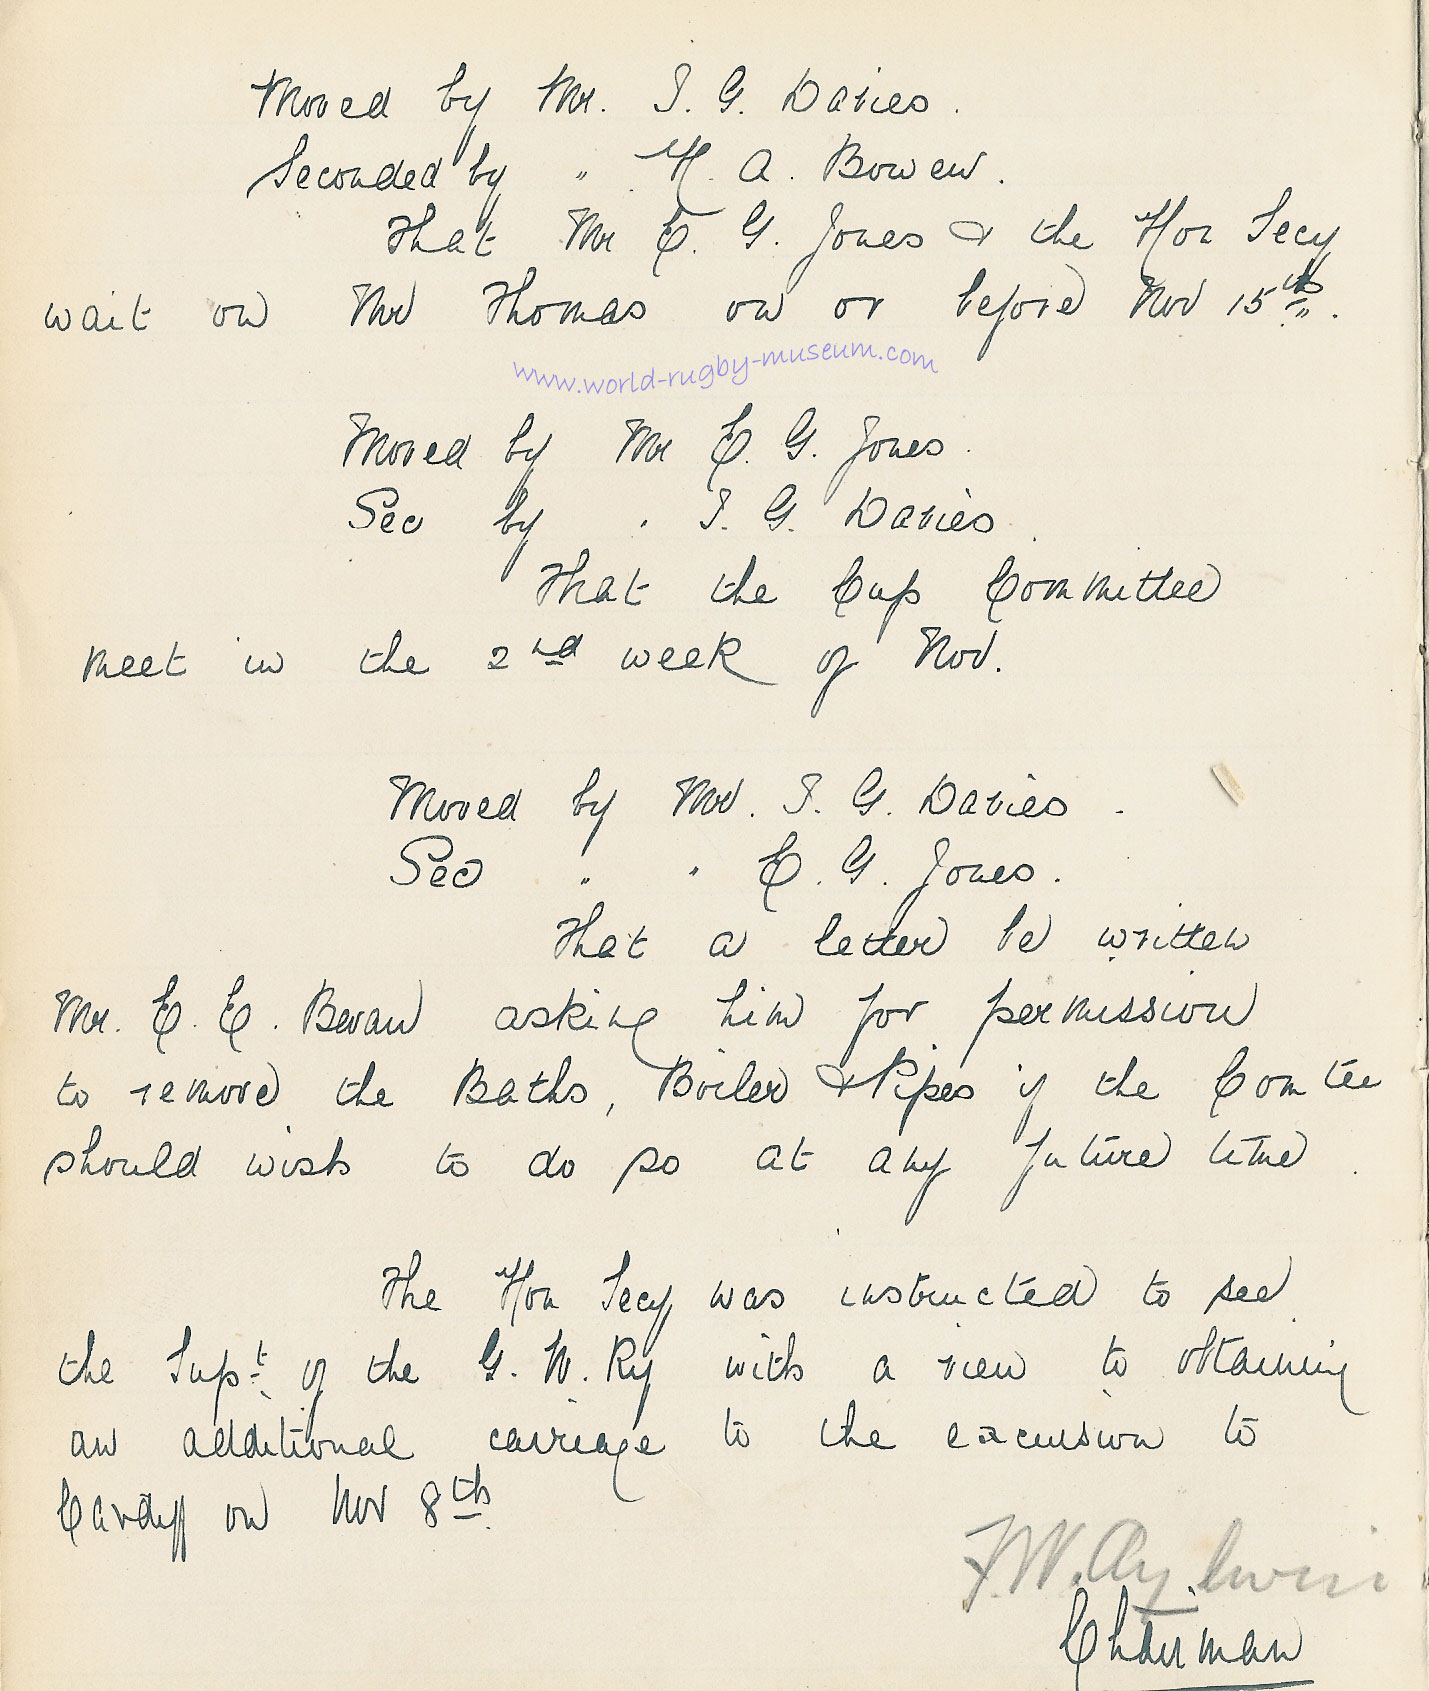 Moved by Mr. T. G. Davies.
Seconded by " H. A. Bowen.
That Mr E. G. Jones & the Hon Secy
wait on Mr Thomas on or before Nov 15th.
www.world-rugby-museum.com
Moved by Mr E. G. Jones.
Sec by " T. G. Davies
That the Cup Committee
meet in the 2nd week of Nov.
Moved by Mr. T. G. Davies.
Sec " " E. G. Jones.
That a letter be written
Mr. E. E. Bevan asking him for permission
to remove the Baths, Boiler & Pipes if the Comtee
should wish to do so at any future time.
The Hon Secy was instructed to see
the Supt. of the G. W. Ry with a view to obtaining
an additional carriage to the excursion to
Cardiff on Nov 8th.
F. W. Aylwin
Chairman